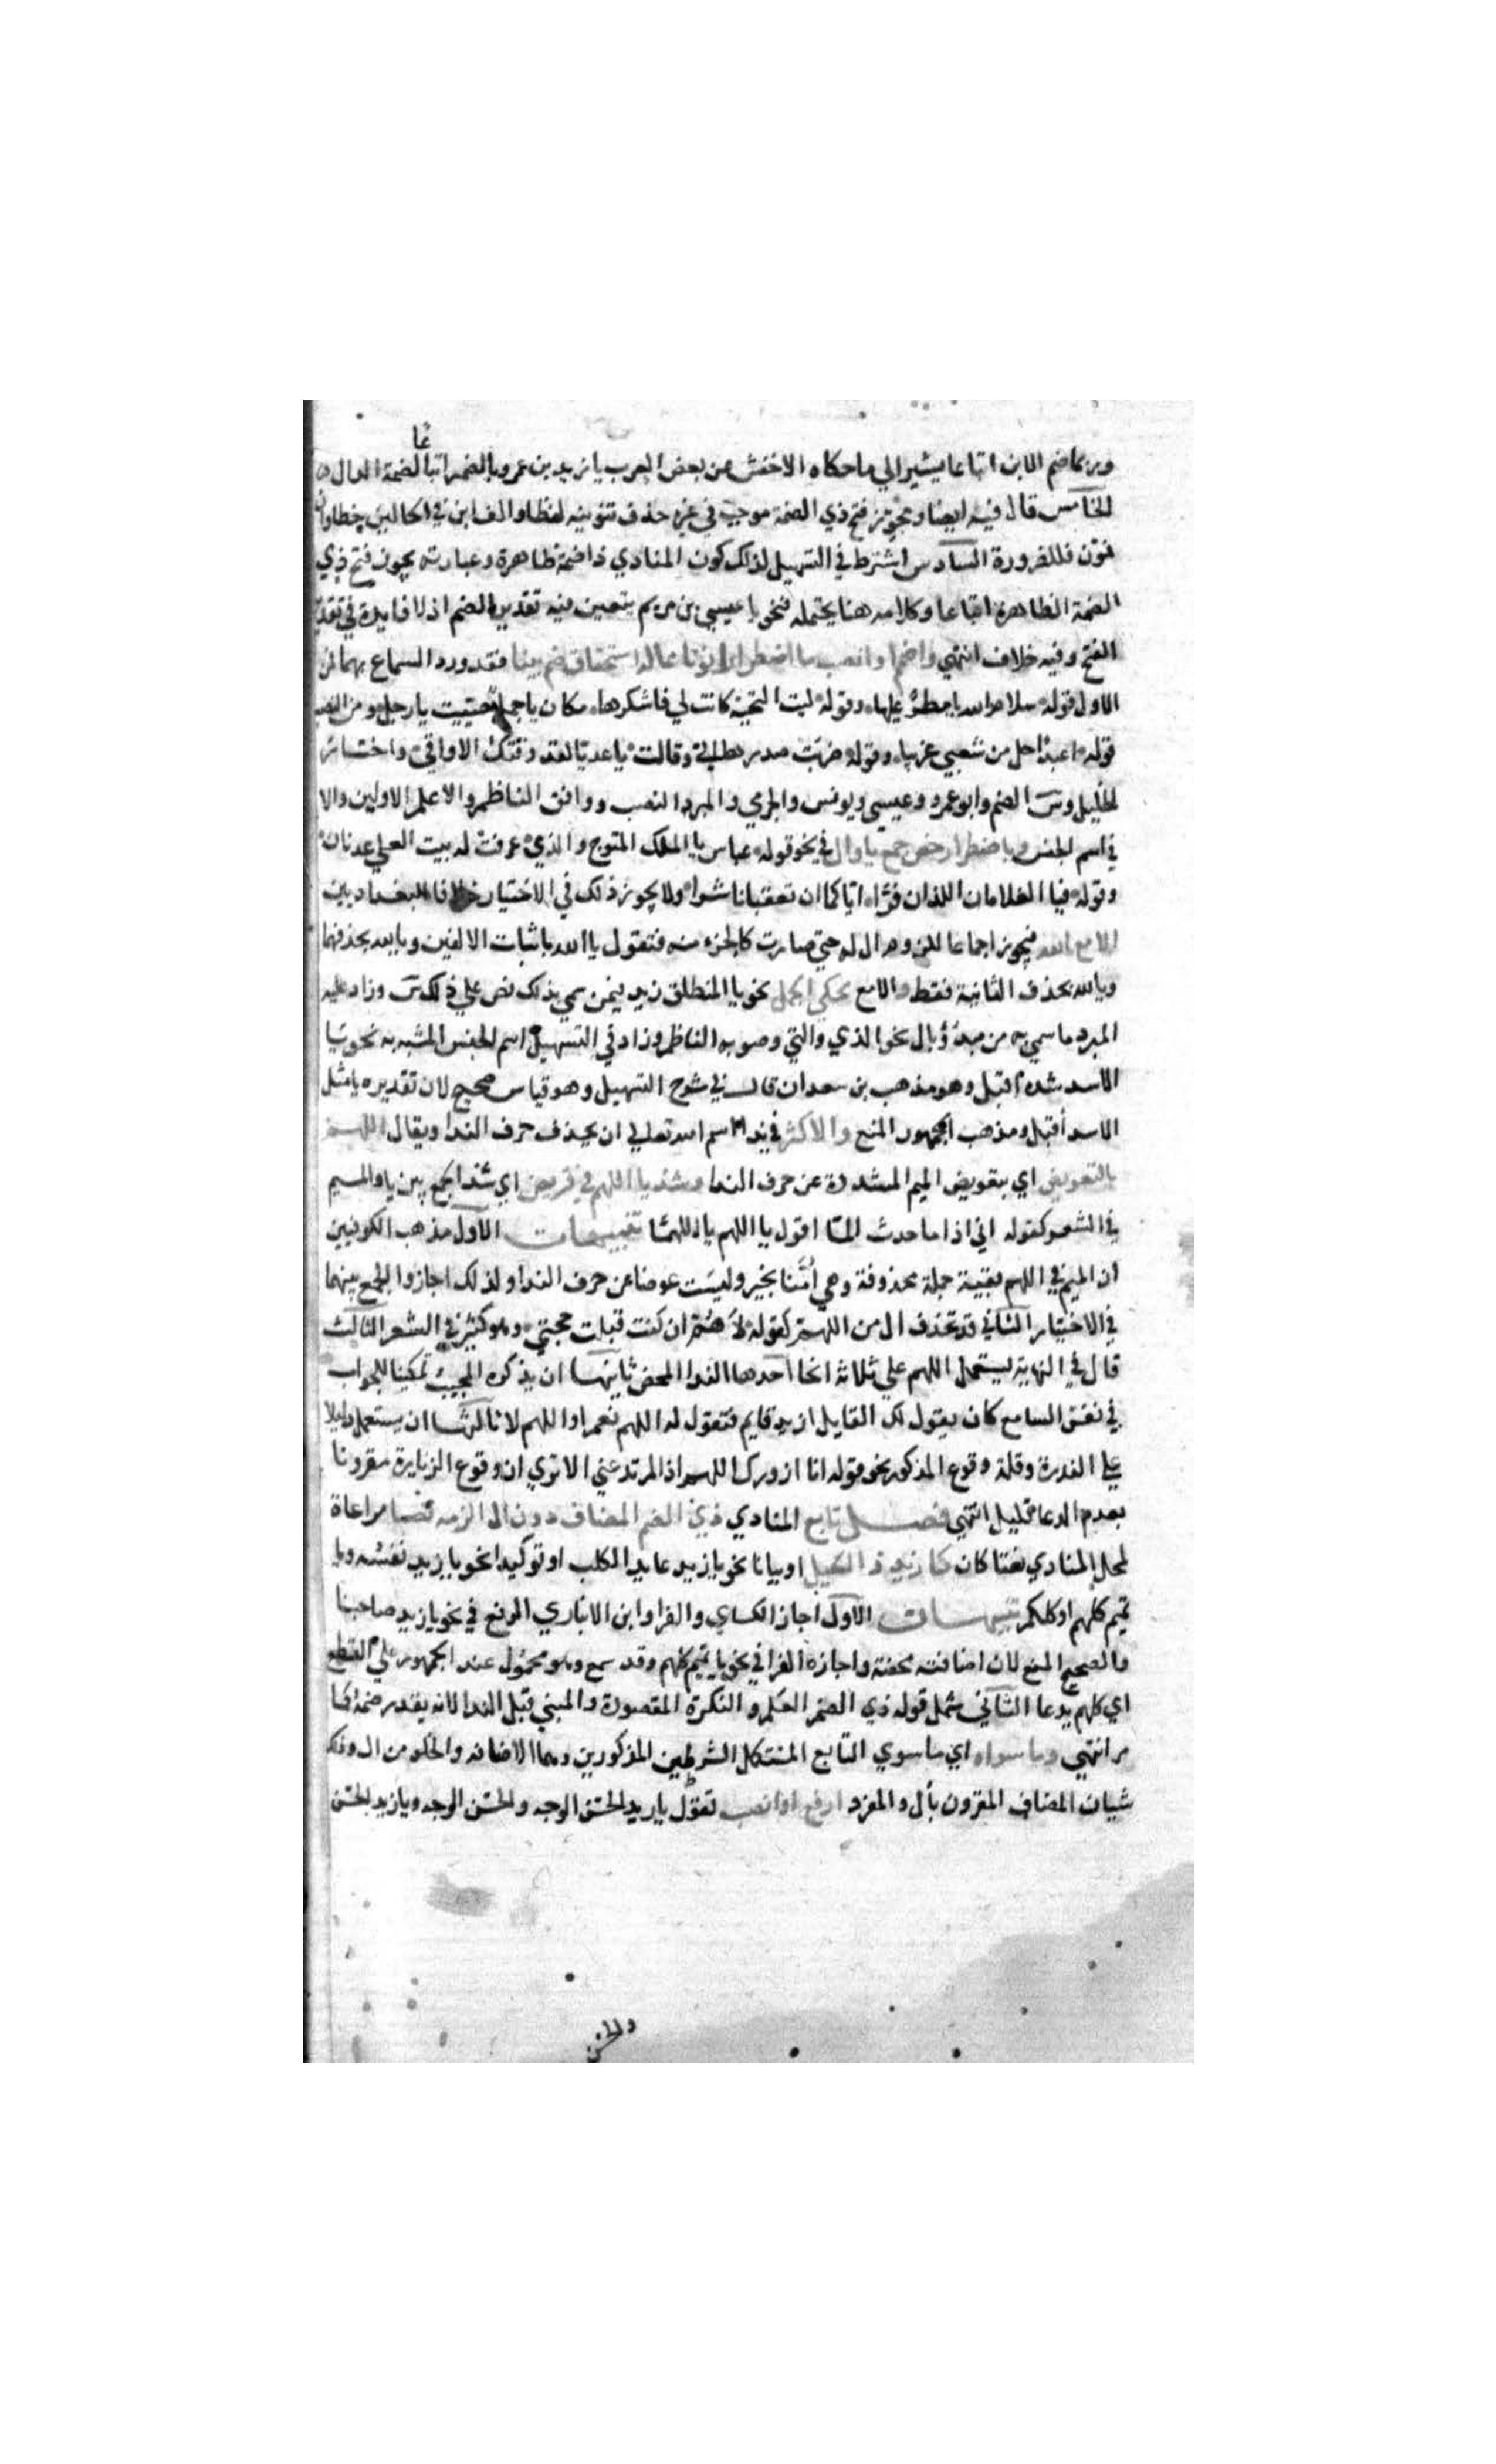 وربما ضم الابن اتباعا يشير الي ما حكاه الاخفش عن بعض العرب يا زيد بن عمرو بالضم اتباعا لضمة الدال ه
الخامس قال فيه ايضا ومجوز فتح ذي الضمة موجب في غيره حذف تنوينه لفظا والف ابن في الحالين خطا وان
نون فللضرورة السادس اشترط في التسهيل لذلك كون المنادي ذا ضمة ظاهرة وعبارته يجوز فتح ذي
الضمة الظاهرة اتباعا وكلامه هنا يحتمله فنحو يا عيسي بن مريم يتعين فيه تقدير الضم اذ لا فايدة في تقدير
الفتح وفيه خلاف انتهي واضمم او انصب ما اضطرارا نونا مما له استحقاق ضم بينا فقد ورد السماع بهما فمن
الاول قوله سلام الله يا مطرٌ عليها وقوله ليت التحية كانت لي فاشكرها مكان يا جمل حييت يا رجل ومن النصب
قوله اعبدا حل من شعبي غريبا وقوله ضربت صدرها الي وقالت يا عديا لقد وقتك الاواقي واختار
الخليل وس الضم وابو عمرو وعيسي ويونس والجرمي والمبرد النصب ووافق الناظم والاعلم الاولين والا
في اسم الجنس وباضطرار خص جمع يا وال في نحو قوله عباس يا الملك المتوج والذي عرفت له بيت العلي عدنان
وقوله فيا الغلامان اللذان فرا اياكما ان تعقبانا شرا ولا يجوز ذلك في الاختيار خلافا للبغداديين
الا مع الله فيجوز اجماعا للزوم ال له حتي صارت كالجزء منه فتقول يا الله باثبات الالفين ويالله بحذفهما
ويا لله بحذف الثانية فقط والا مع محكي الجمل نحو يا المنطلق زيد فيمن سمي بذلك نص علي ذلك س وزاد عليه
المبرد ما سمي به من مبدؤ بال نحو الذي والتي وصوبه الناظم وزاد في التسهيل اسم الجنس المشبه به نحو يا
الاسد شدة اقبل وهو مذهب بن سعدان قال في شرح التسهيل وهو قياس صحيح لان تقديره يا مثل
الاسد أقبل ومذهب الجمهور المنع والاكثر في نداء اسم الله تعالي ان يحذف حرف الندا ويقال اللهم
بالتعويض اي بتعويض الميم المشددة عن حرف الندا وشذ يا اللهم في قريض اي شذ الجمع بين يا والميم
في الشعر كقوله اني اذا ما حدث المّا اقول يا اللهم يا اللهما تنبيهات الاول مذهب الكوفيين
ان الميم في اللهم بقية جملة محذوفة وهي أمّنا بخير وليست عوضا عن حرف الندا ولذلك اجازوا الجمع بينهما
في الاختيار الثاني قد تحذف ال من اللهم كقوله لاهم ان كنت قبلت حجتي وهو كثير في الشعر الثالث
قال في النهاية يستعمل اللهم علي ثلاثة انحا احدها الندا المحض ثانيها ان يذكره المجيب تمكينا للجواب
في نفس السامع كان يقول لك القايل ازيد قايم فتقول له اللهم نعم او اللهم لا ثالثها ان يستعمل دليلا
علي الندرة وقلة وقوع المذكور نحو قوله انا ازورك اللهم اذا لم تدعني الا تري ان وقوع الزيارة مقرونا
بعدم الدعا قليل انتهي فصل تابع المنادي ذي الضم المضاف دون ال الزمه نصبا مراعاة
لمحل المنادي نعتا كان كازيد ذا الحيل او بيانا نحو يا زيد عايد الكلب او توكيدا نحو يا زيد نفسه ويا
تميم كلهم او كلكم تنبيهات الاول اجاز الكساي والفرا وابن الانباري الرفع في نحو يا زيد صاحبنا
والصحيح المنع لان اضافته محضة واجازه الفرا في نحو يا تميم كلهم وقد سمع وهو محمول عند الجمهور علي القطع
اي كلهم يدعا الثاني شمل قوله ذي الضم العلم والنكرة المقصودة والمبني قبل الندا لانه يقدر ضمه كما
مر انتهي وما سواه اي ما سوي التابع المستكمل الشرطين المذكورين وهما الاضافه والخلو من ال وذلك
شيان المضاف المقرون بأل والمفرد ارفع او انصب تقول يا زيد الحسنُ الوجه والحسنَ الوجه ويا زيد الحسن
والحسن